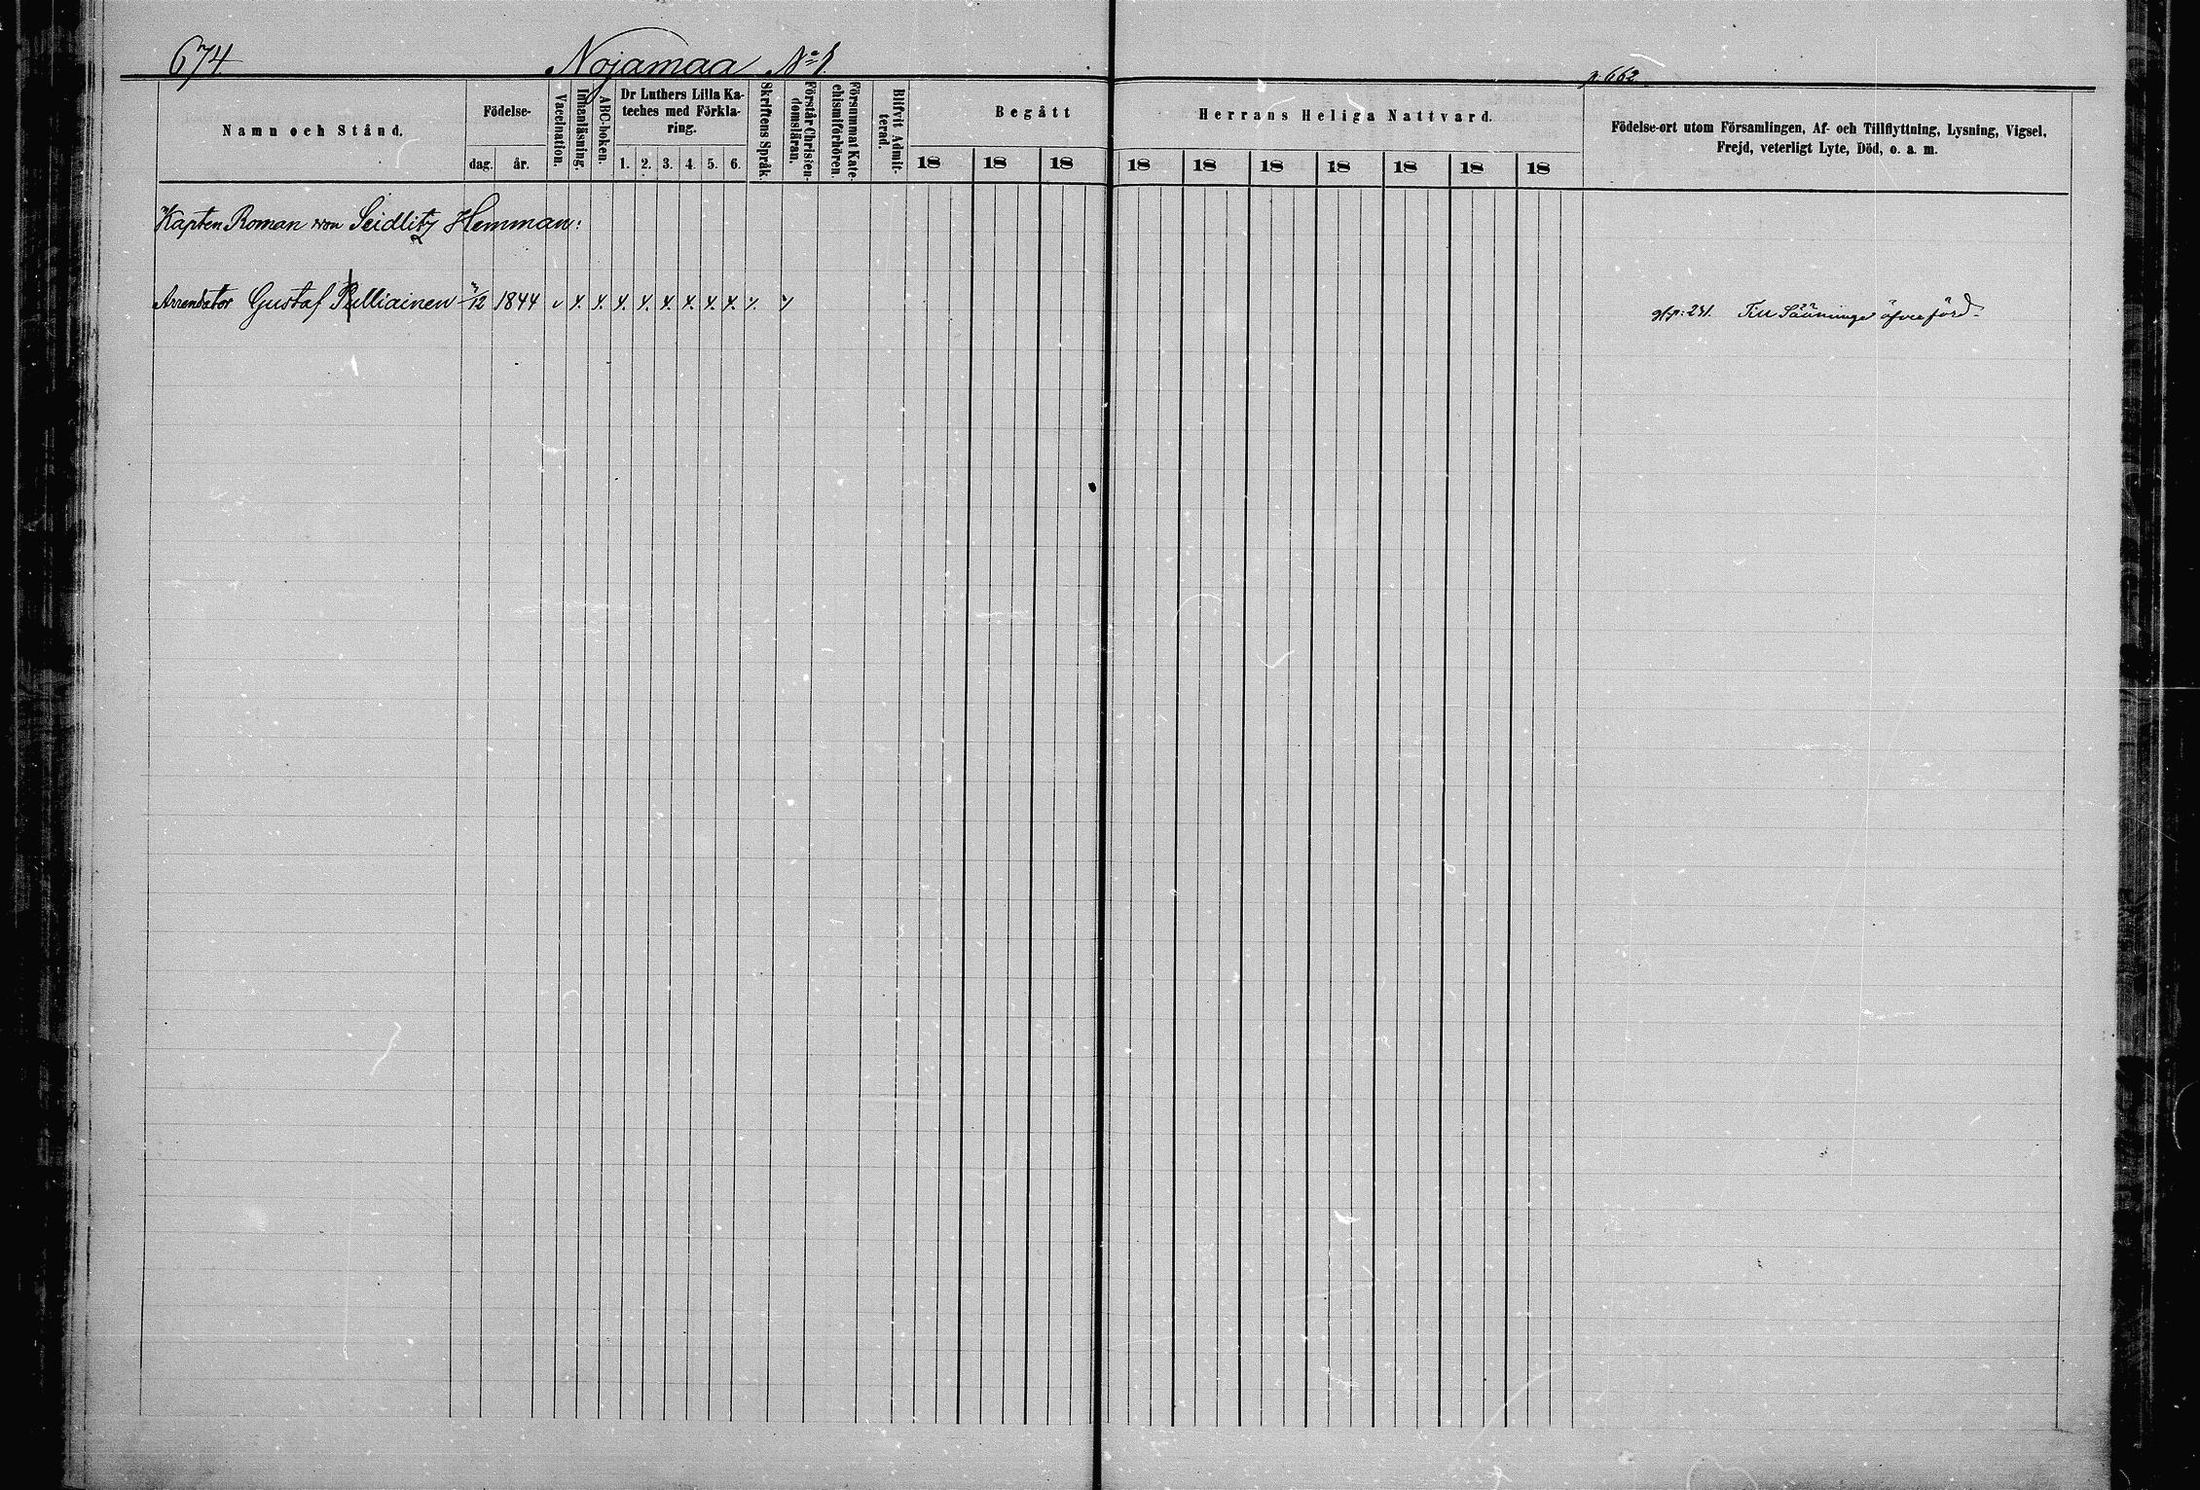 674.
Nojamaa No 1.
p. 662
Namn och Stånd.
Födelse-
dag.
år.
Vaccination.
Innanläsning.
ABC-boken.
Dr Luthers Lilla Ka-
teches med Förkla-
ring.
1. 2. 3. 4. 5. 6.
Skriftens Språk.
Förstår Christen-
domsläran.
Försummat Kate-
chismiförhören.
Blifvit Admit-
terad.
Begått
18 18 18
Herrans Heliga Nattvard.
18 18 18 18 18 18 18
Födelse-ort utom Församlingen, Af- och Tillflyttning, Lysning, Vigsel,
Frejd, veterligt Lyte, Död, o. a. m.
Kapten Roman von Seidlitz Hemman:
Arrendator Gustaf Pulliainen /12 1844
p: 231. Till Sääminge öfverförd.